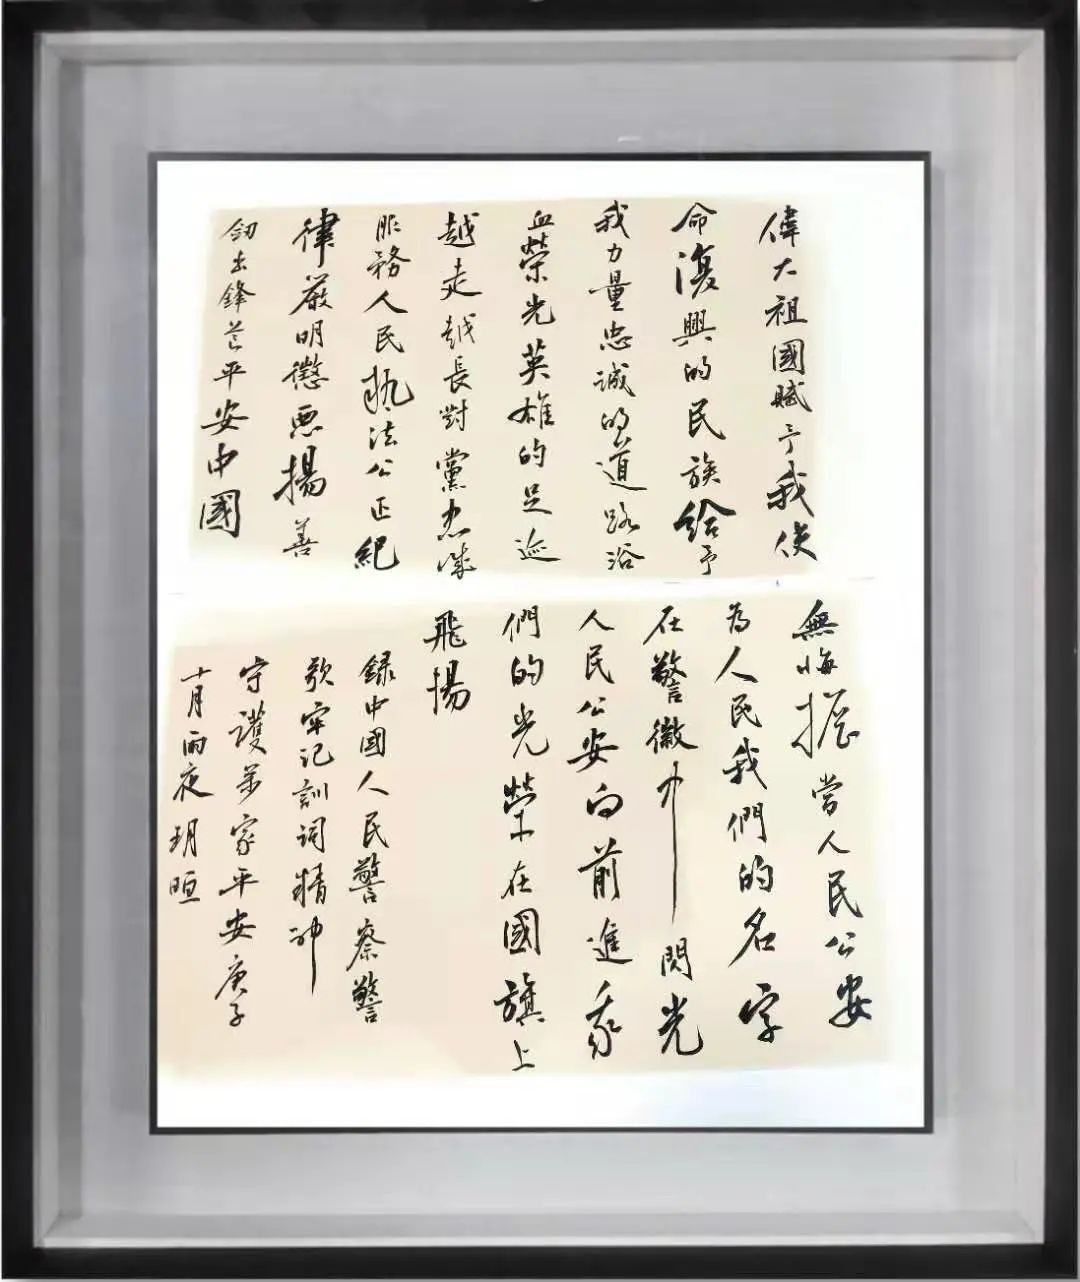 偉大祖國賦予我使
命復興的民族給予
我力量忠誠的道路浴
血榮光英雄的足迹
越走越長對黨忠誠
服務人民執法公正紀
律嚴明懲惡揚善
劍出鋒芒平安中國
無悔擔當人民公安
為人民我們的名字
在警徽中閃光
人民公安向前進我
們的光榮在國旗上
飛揚
錄中國人民警察警
歌牢記訓詞精神
守護萬家平安庚子
十月雨夜玥晅